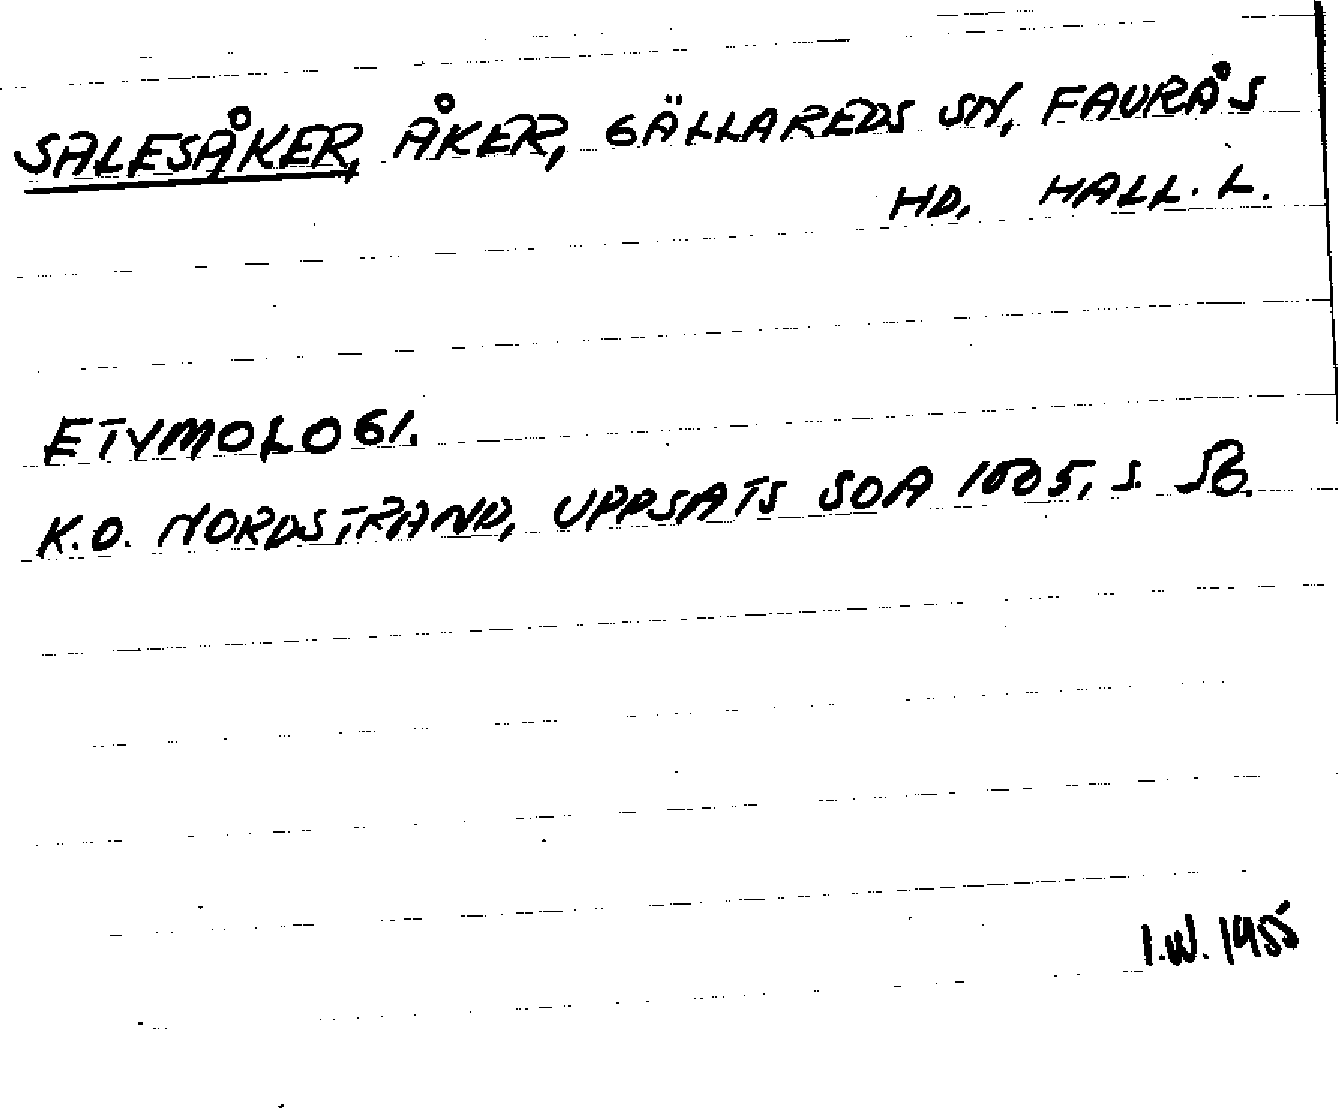 SALESÅKER, ÅKER, GÄLLAREDS SN, FAURÅS
HD, HALL. L.
ETYMOLOGI.
K.O. NORDSTRAND, UPPSATS SOA 1005, S.
I.W. 1955